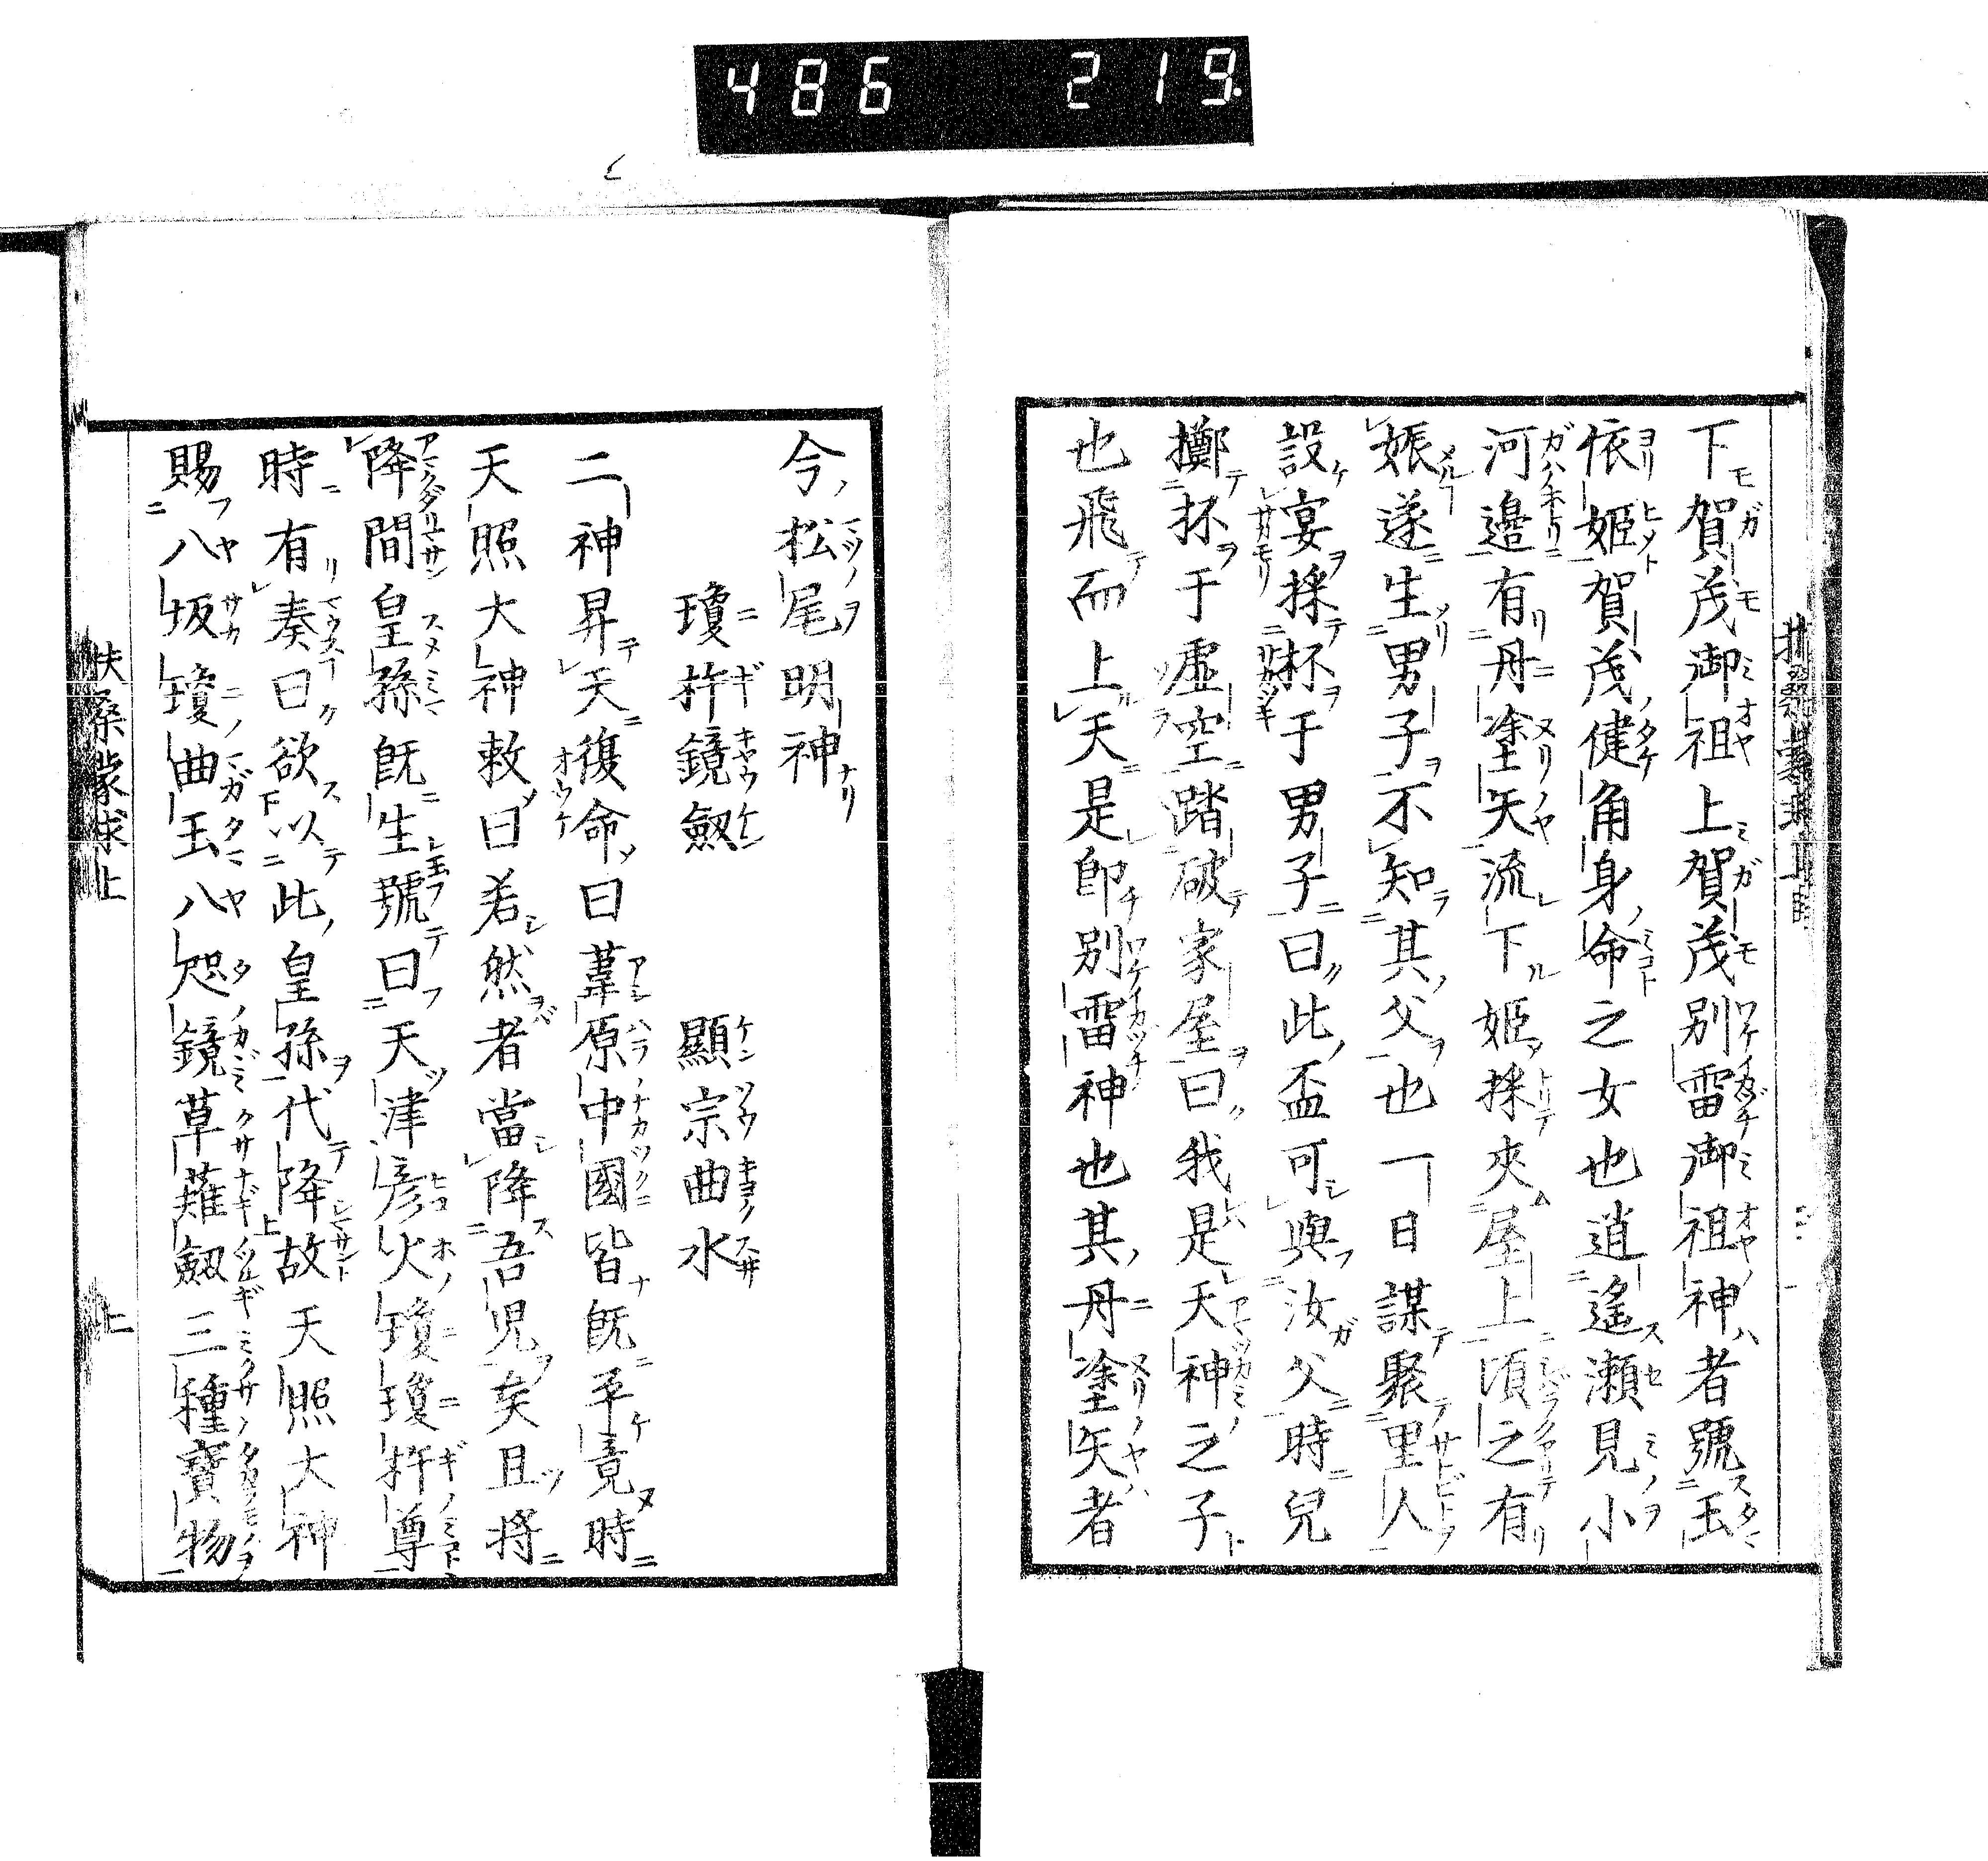 486 219
下賀茂御祖上賀茂別雷御祖神者號玉
依姫賀茂健角身命之女也逍遙瀬見小
河邉有丹塗矢流下姫採夾屋上頃之有
娠遂生男子不知其父也一日謀聚里人
設宴採杯于男子曰此盃可與汝父時兒
擲杯于虚空踏破家屋曰我是天神之子
也飛而上天是即別雷神也其丹塗矢者
今松尾明神
瓊杵鏡劔　顯宗曲水
二神昇天復命曰葦原中國皆既平竟時
天照大神敕曰若然者當降吾児矣且將
降間皇孫既生號曰天津彦火瓊瓊杵尊
時有奏曰欲以此皇孫代降故天照大神
賜八坂瓊曲玉八咫鏡草薙劔三種寶物
扶桑蒙求上